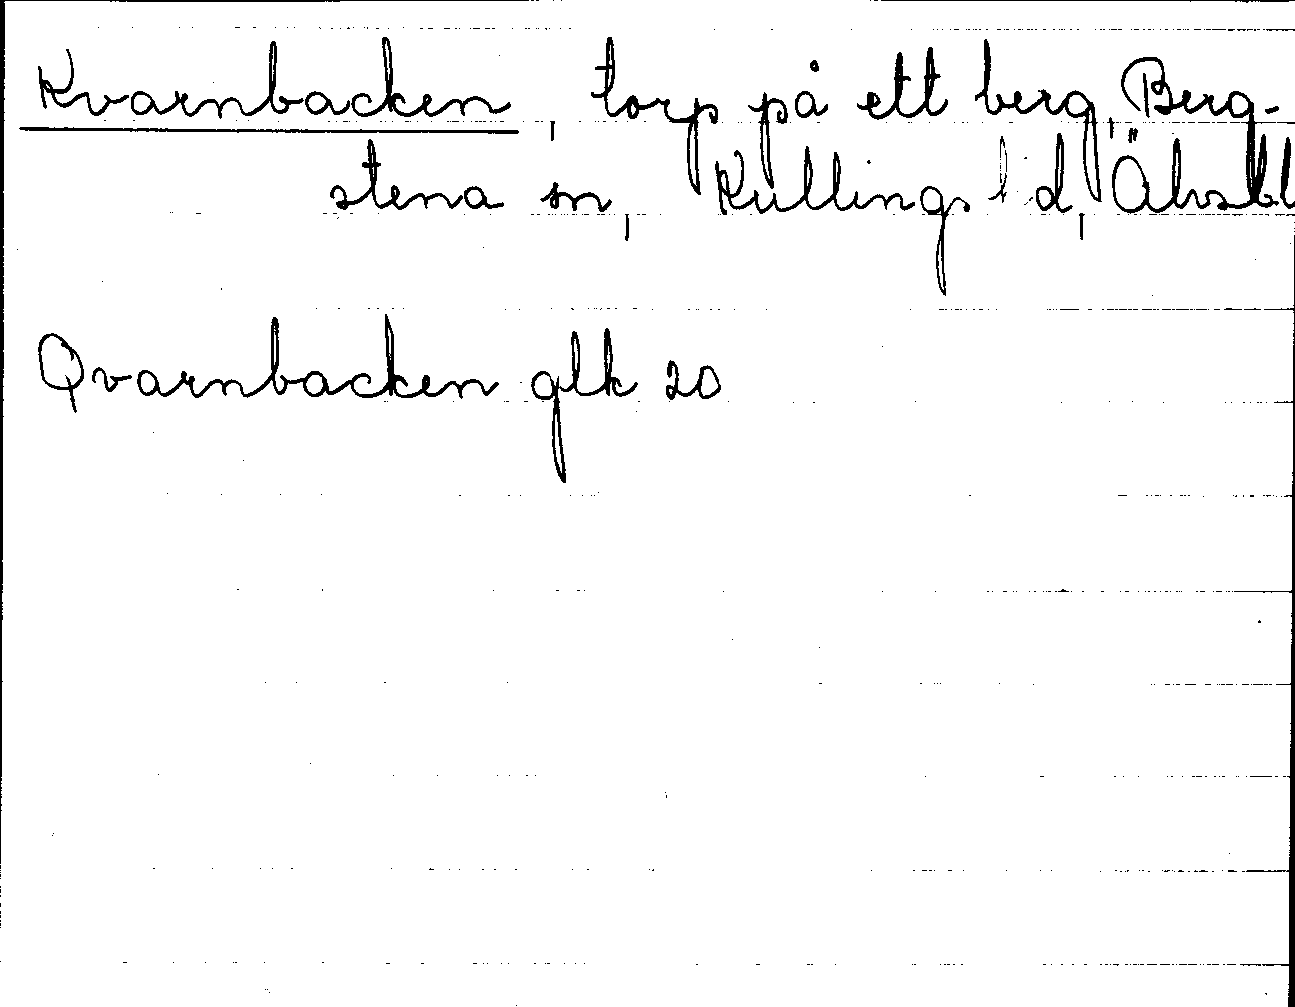 Kvarnbacken, torp på ett berg, Berg-
stena sn, Kullings hd, Älvsbl
Qvarnbacken glk 20